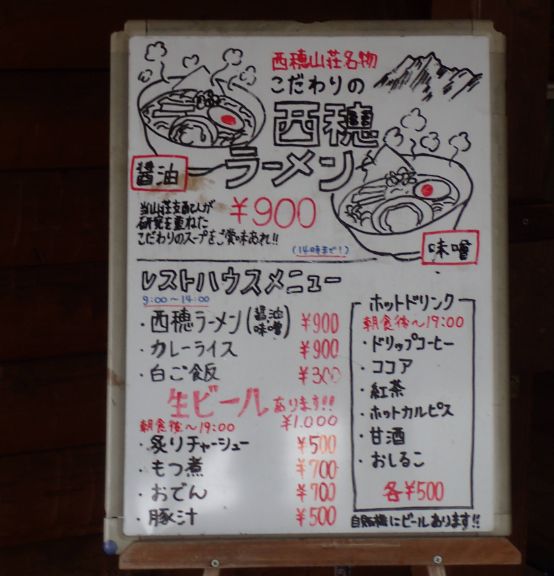 西穂山荘名物
こだわりの
西穂
ラーメン
醤油
当山荘支配人が
研究を重ねた
こだわりのスープをご賞味あれ!!
¥900
(14時まで!)
味噌
レストハウスメニュー
9:00～14:00
・西穂ラーメン(醤油 味噌) ¥900
・カレーライス ¥900
・白ご飯 ¥300
生ビールあります!!
朝食後～19:00 ¥1.000
・炙りチャーシュー ¥500
・もつ煮 ¥700
・おでん ¥700
・豚汁 ¥500
ホットドリンク
朝食後～19:00
・ドリップコーヒー
・ココア
・紅茶
・ホットカルピス
・甘酒
・おしるこ
各¥500
自販機にビールあります!!